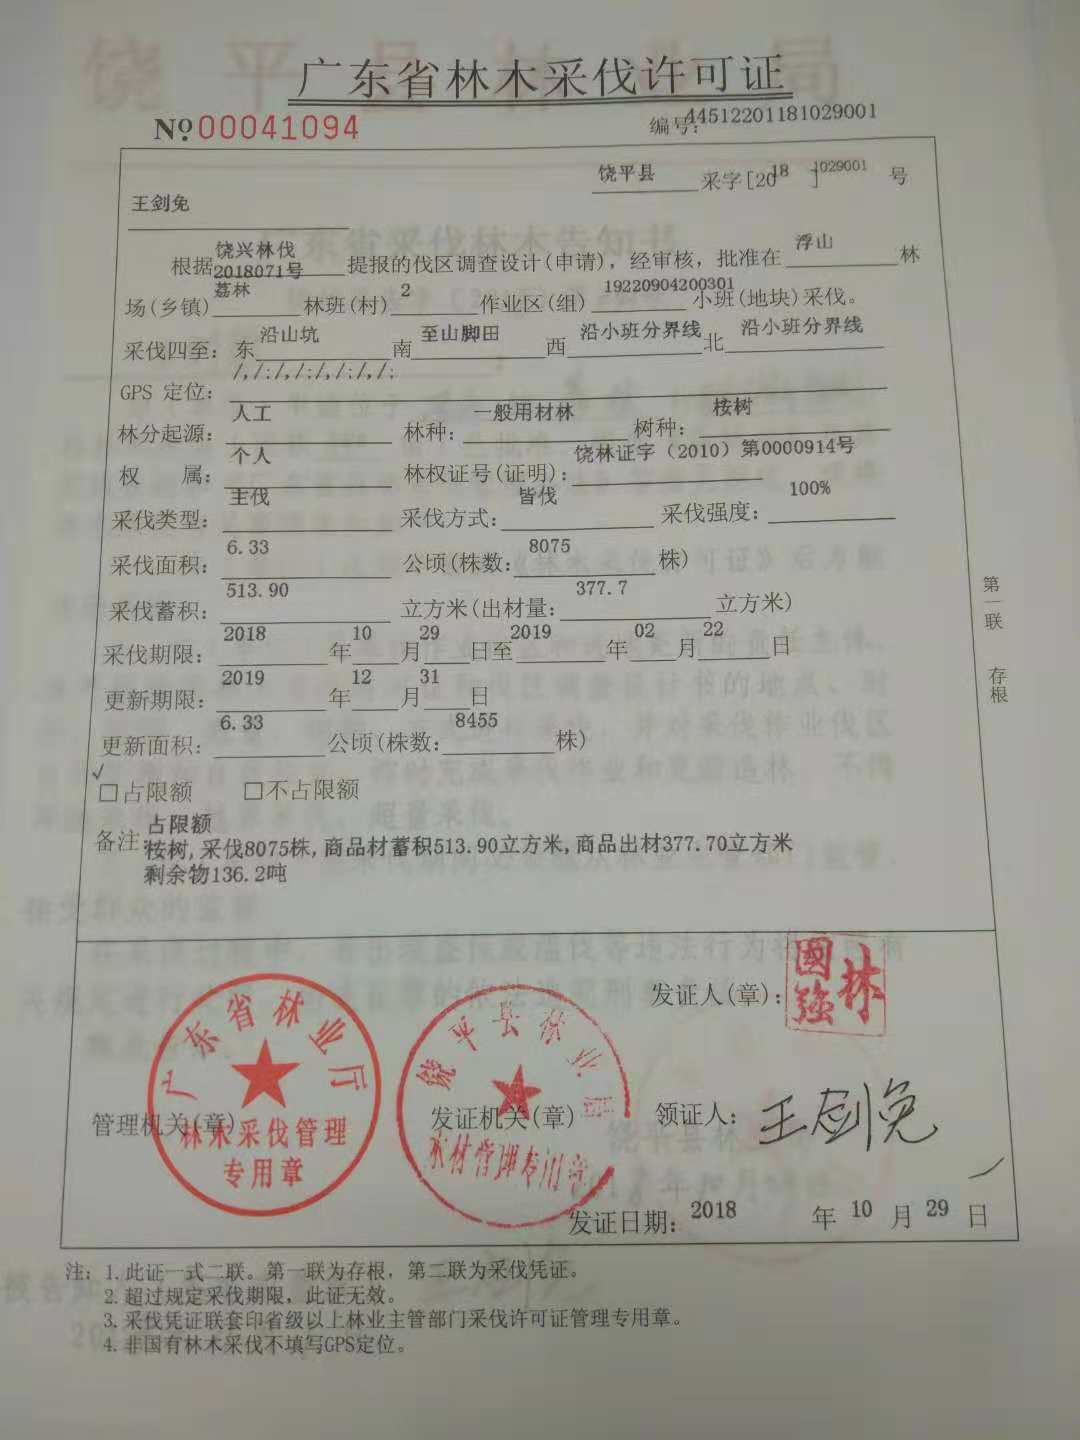 广东省林木采伐许可证
No 00041094
编号：44512201181029001
饶平县 采字[2018]1029001 号
王剑兔
根据饶兴林伐2018071号提报的伐区调查设计(申请)，经审核，批准在 浮山 林
场(乡镇) 荔林 林班(村) 2 作业区(组) 19220904200301 小班(地块)采伐。
采伐四至：东 沿山坑 南 至山脚田 西 沿小班分界线 北 沿小班分界线
GPS 定位：/,/;/,/;/,/;/,/;
林分起源：人工 林种：一般用材林 树种：桉树
权 属：个人 林权证号(证明)：饶林证字（2010）第0000914号
采伐类型：主伐 采伐方式：皆伐 采伐强度：100%
采伐面积：6.33 公顷(株数：8075 株)
采伐蓄积：513.90 立方米(出材量：377.7 立方米)
采伐期限：2018 年 10 月 29 日至 2019 年 02 月 22 日
更新期限：2019 年 12 月 31 日
更新面积：6.33 公顷(株数：8455 株)
√
□占限额 □不占限额
备注：占限额
桉树,采伐8075株,商品材蓄积513.90立方米,商品出材377.70立方米
剩余物136.2吨
第一联 存根
发证人(章)：林國強
管理机关(章)
广东省林业厅
林木采伐管理
专用章
发证机关(章)
饶平县林业局
木材管理专用章
领证人：王剑兔
发证日期：2018 年 10 月 29 日
注：1.此证一式二联。第一联为存根，第二联为采伐凭证。
2.超过规定采伐期限，此证无效。
3.采伐凭证联套印省级以上林业主管部门采伐许可证管理专用章。
4.非国有林木采伐不填写GPS定位。